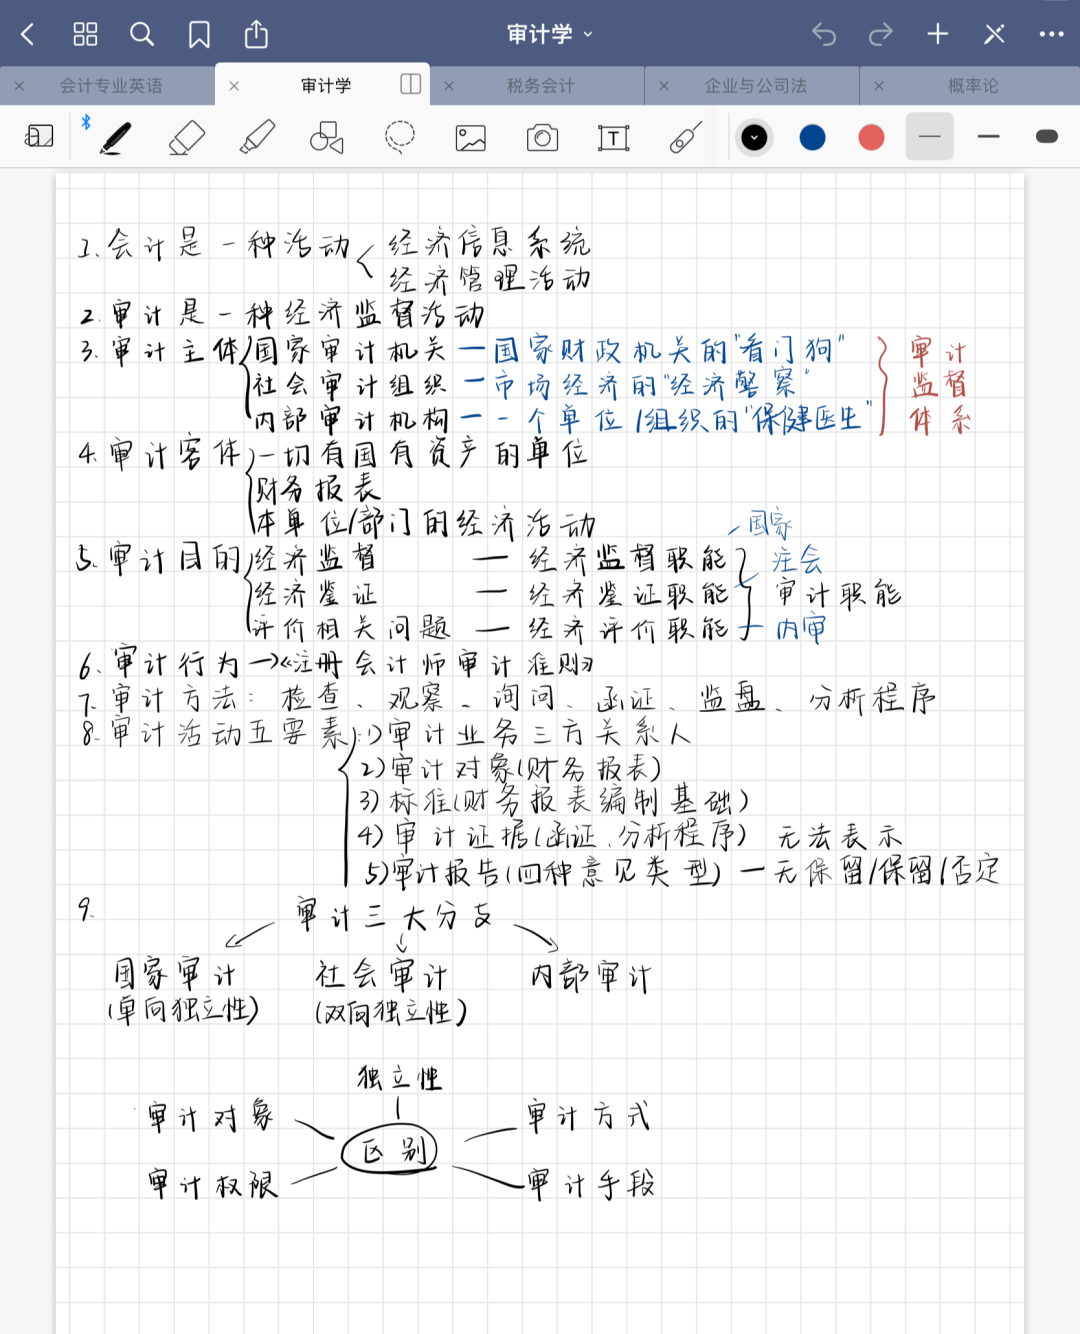 审计学
会计专业英语
审计学
税务会计
企业与公司法
概率论
1. 会计是一种活动 经济信息系统
经济管理活动
2. 审计是一种经济监督活动
3. 审计主体 国家审计机关 — 国家财政机关的"看门狗" 审计
社会审计组织 — 市场经济的"经济警察" 监督
内部审计机构 — 一个单位/组织的"保健医生" 体系
4. 审计客体 一切有国有资产的单位
财务报表
本单位/部门的经济活动
国家
5. 审计目的 经济监督 — 经济监督职能 注会
经济鉴证 — 经济鉴证职能 审计职能
评价相关问题 — 经济评价职能 — 内审
6. 审计行为→《注册会计师审计准则》
7. 审计方法: 检查、观察、询问、函证、监盘、分析程序
8. 审计活动五要素: 1)审计业务三方关系人
2)审计对象(财务报表)
3)标准(财务报表编制基础)
4)审计证据(函证、分析程序) 无法表示
5)审计报告(四种意见类型) — 无保留/保留/否定
9. 审计三大分支
国家审计 社会审计 内部审计
(单向独立性) (双向独立性)
独立性
审计对象 审计方式
区别
审计权限 审计手段